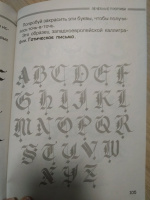 Попробуй закрасить эти буквы, чтобы получи-
лось точь-в-точь.
Это образец западноевропейской каллигра-
фии. Готическое письмо.
A B C D E F
G H I J K L
M N O P Q R
S T U V W
X Y Z